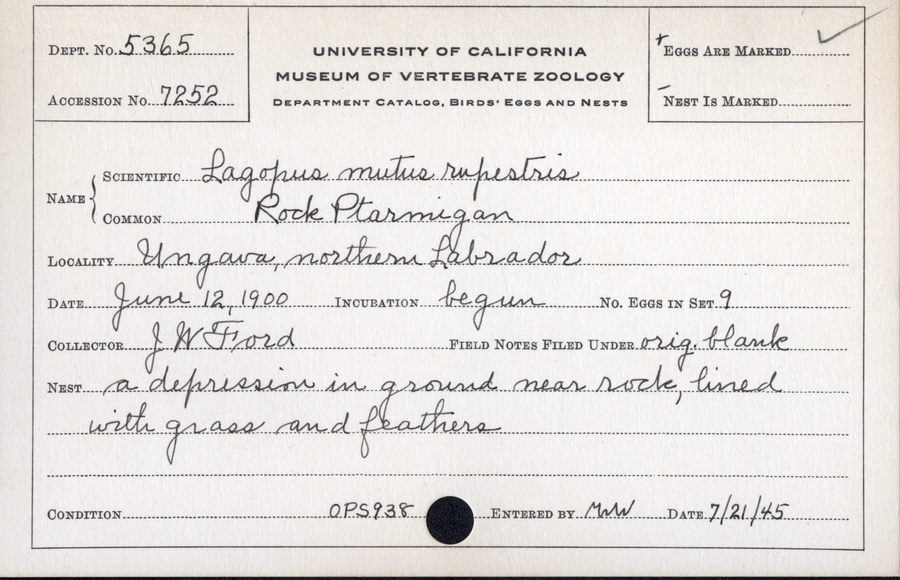 DEPT. No. 5365
ACCESSION No. 7252
UNIVERSITY OF CALIFORNIA
MUSEUM OF VERTEBRATE ZOOLOGY
DEPARTMENT CATALOG, BIRDS' EGGS AND NESTS
+ EGGS ARE MARKED ✓
– NEST IS MARKED
NAME { SCIENTIFIC Lagopus mutus rupestris
COMMON Rock Ptarmigan
LOCALITY Ungava, northern Labrador
DATE June 12, 1900 INCUBATION begun No. EGGS IN SET 9
COLLECTOR J W Ford FIELD NOTES FILED UNDER orig. blank
NEST a depression in ground near rock, lined
with grass and feathers
CONDITION OPS938 ENTERED BY MWW DATE 7/21/45